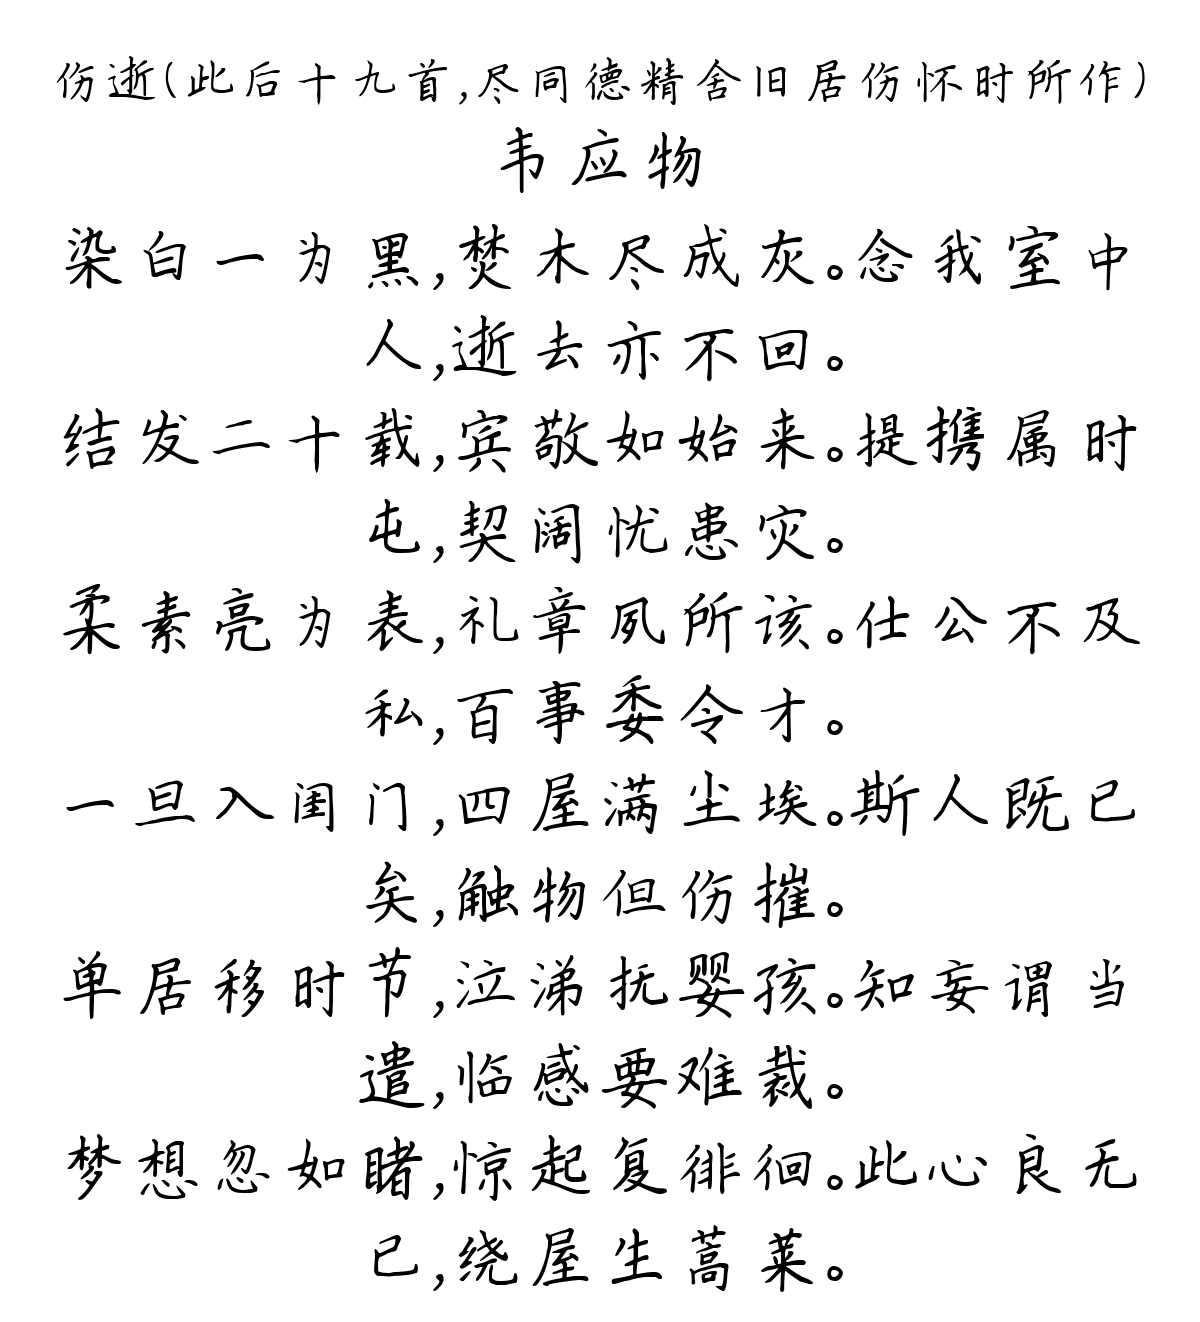 伤逝(此后十九首,尽同德精舍旧居伤怀时所作)
韦应物
染白一为黑,焚木尽成灰。念我室中
人,逝去亦不回。
结发二十载,宾敬如始来。提携属时
屯,契阔忧患灾。
柔素亮为表,礼章夙所该。仕公不及
私,百事委令才。
一旦入闺门,四屋满尘埃。斯人既已
矣,触物但伤摧。
单居移时节,泣涕抚婴孩。知妄谓当
遣,临感要难裁。
梦想忽如睹,惊起复徘徊。此心良无
已,绕屋生蒿莱。